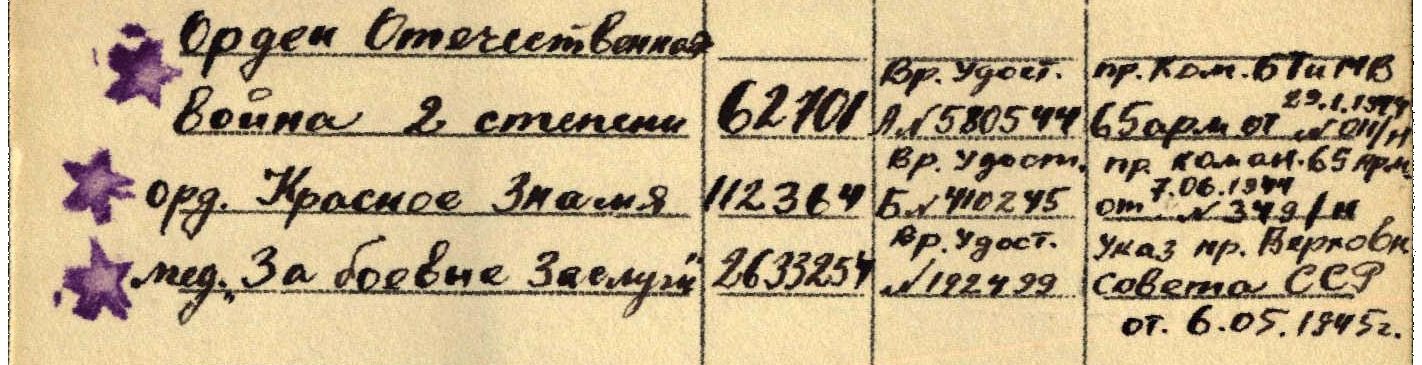 Орден Отечественная
война 2 степени 62701 Вр. Удост. А №580544 пр. Ком. БТиМВ 65 арм от 29.1.1944 №011/н
орд. Красное Знамя 112364 Вр. Удост. Б №410245 пр. коман. 65 Арм от 7.06.1944 №349/н
мед. „За боевые Заслуги" 2633254 Вр. Удост. №192499 Указ пр. Верховн Совета ССР
от. 6.05.1945г.